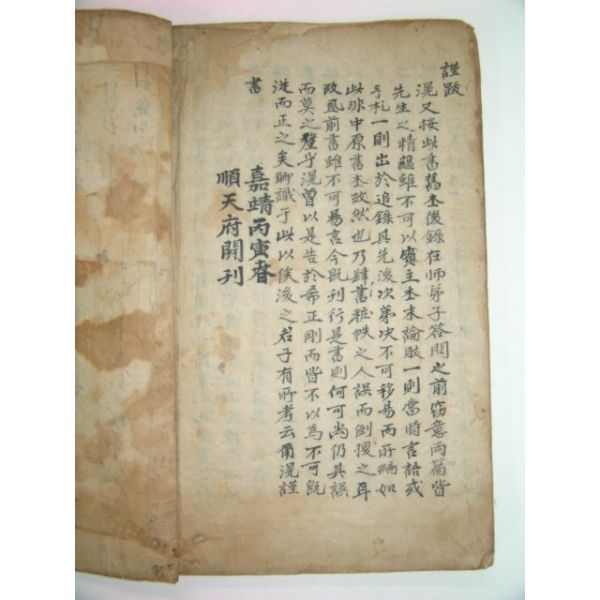 謹跋
滉又按此書舊本後錄在师弟子答問之前窃意兩篇皆
先生之精蘊雖不可以賓主本末論肰一則當時言語或
手札一則出於追錄其先後次第决不可移易而所編如
此非中原書本故然也乃肆書粧帙之人誤而倒換之耳
改風前書雖不可易言今既刊行是書則何可尚仍其誤
而莫之釐乎滉曾以是告於希正剛而皆不以為不可既
從而正之矣聊識于此以俟後之君子有所考云爾滉謹
書
嘉靖丙寅春
順天府開刊